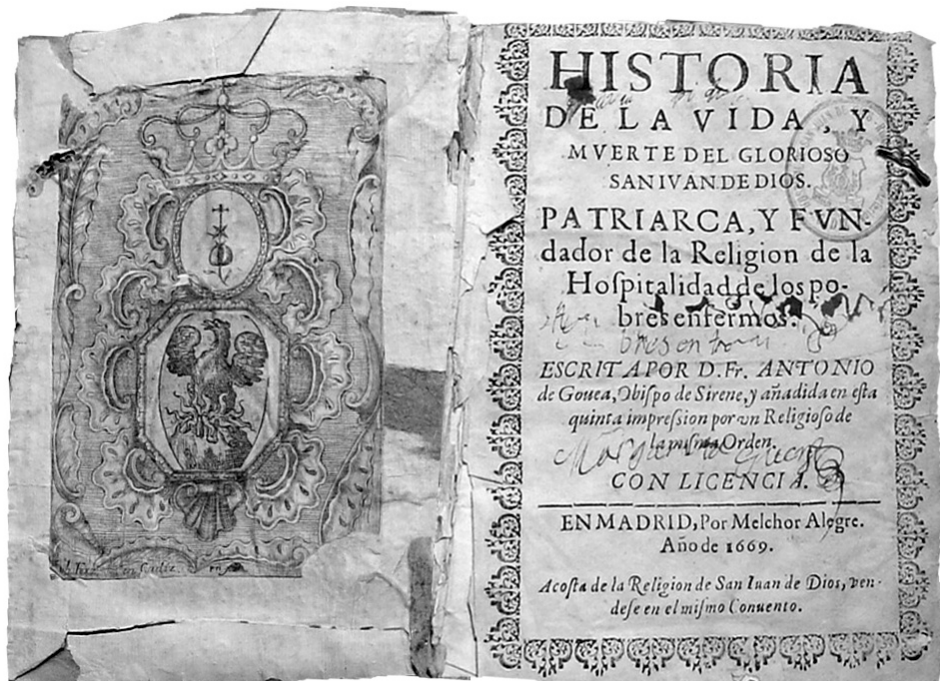 en Cadiz
HISTORIA
DE LA VIDA, Y
MVERTE DEL GLORIOSO
SAN IVAN DE DIOS.
PATRIARCA, Y FVN-
dador de la Religion de la
Hoſpitalidad de los po-
bres enfermos.
ESCRITA POR D. Fr. ANTONIO
de Gouea, Obiſpo de Sirene, y añadida en eſta
quinta impreſsion por vn Religioſo de
la miſma Orden.
CON LICENCIA.
EN MADRID, Por Melchor Alegre.
Año de 1669.
Acoſta de la Religion de San Iuan de Dios, ven-
deſe en el miſmo Conuento.